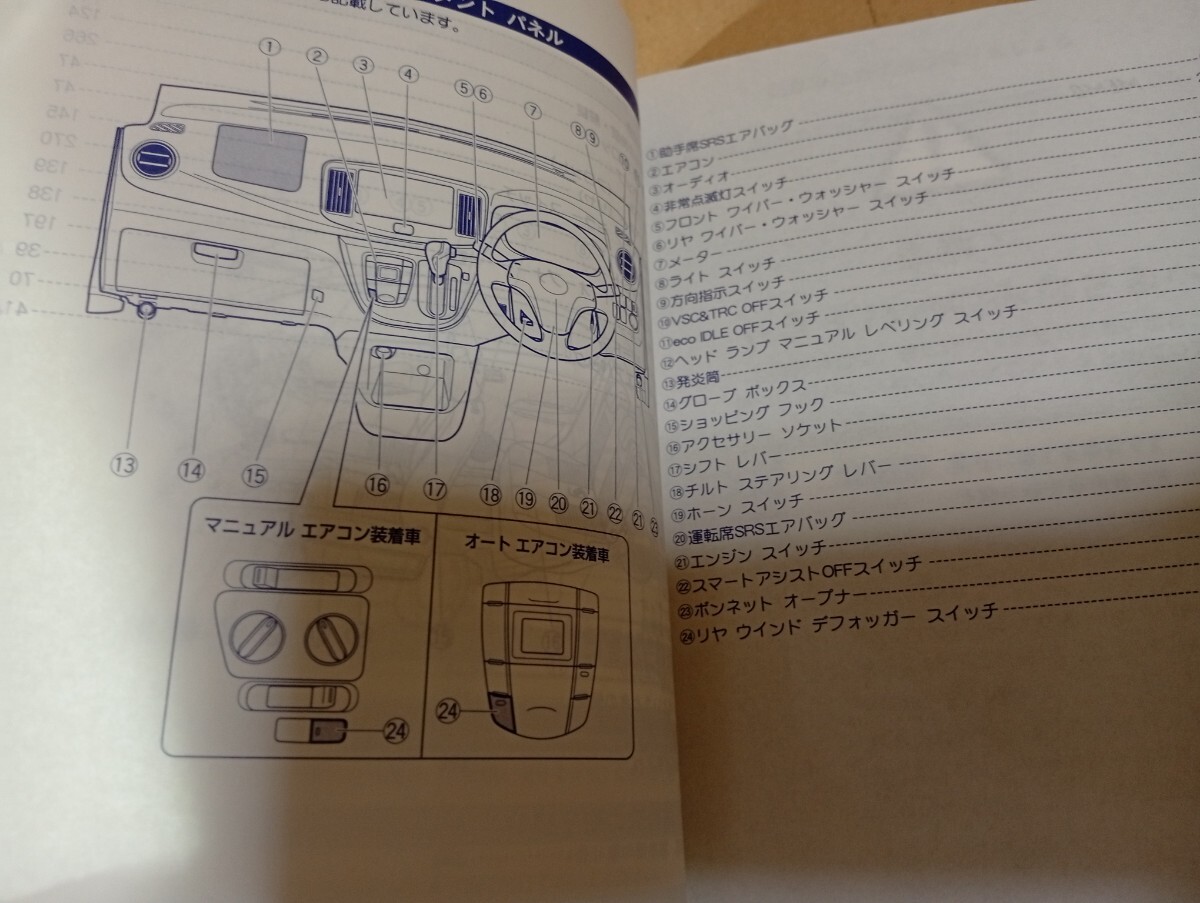 メント パネル
記載しています。
①
②
③
④
⑤⑥
⑦
⑧⑨
⑬
⑭
⑮
⑯
⑰
⑱
⑲
⑳
㉑
㉒
㉑
㉓
マニュアル エアコン装着車
㉔
オート エアコン装着車
㉔
①助手席SRSエアバッグ
②エアコン
③オーディオ
④非常点滅灯スイッチ
⑤フロント ワイパー・ウォッシャー スイッチ
⑥リヤ ワイパー・ウォッシャー スイッチ
⑦メーター
⑧ライト スイッチ
⑨方向指示スイッチ
⑩VSC&TRC OFFスイッチ
⑪eco IDLE OFFスイッチ
⑫ヘッド ランプ マニュアル レベリング スイッチ
⑬発炎筒
⑭グローブ ボックス
⑮ショッピング フック
⑯アクセサリー ソケット
⑰シフト レバー
⑱チルト ステアリング レバー
⑲ホーン スイッチ
⑳運転席SRSエアバッグ
㉑エンジン スイッチ
㉒スマートアシストOFFスイッチ
㉓ボンネット オープナー
㉔リヤ ウインド デフォッガー スイッチ